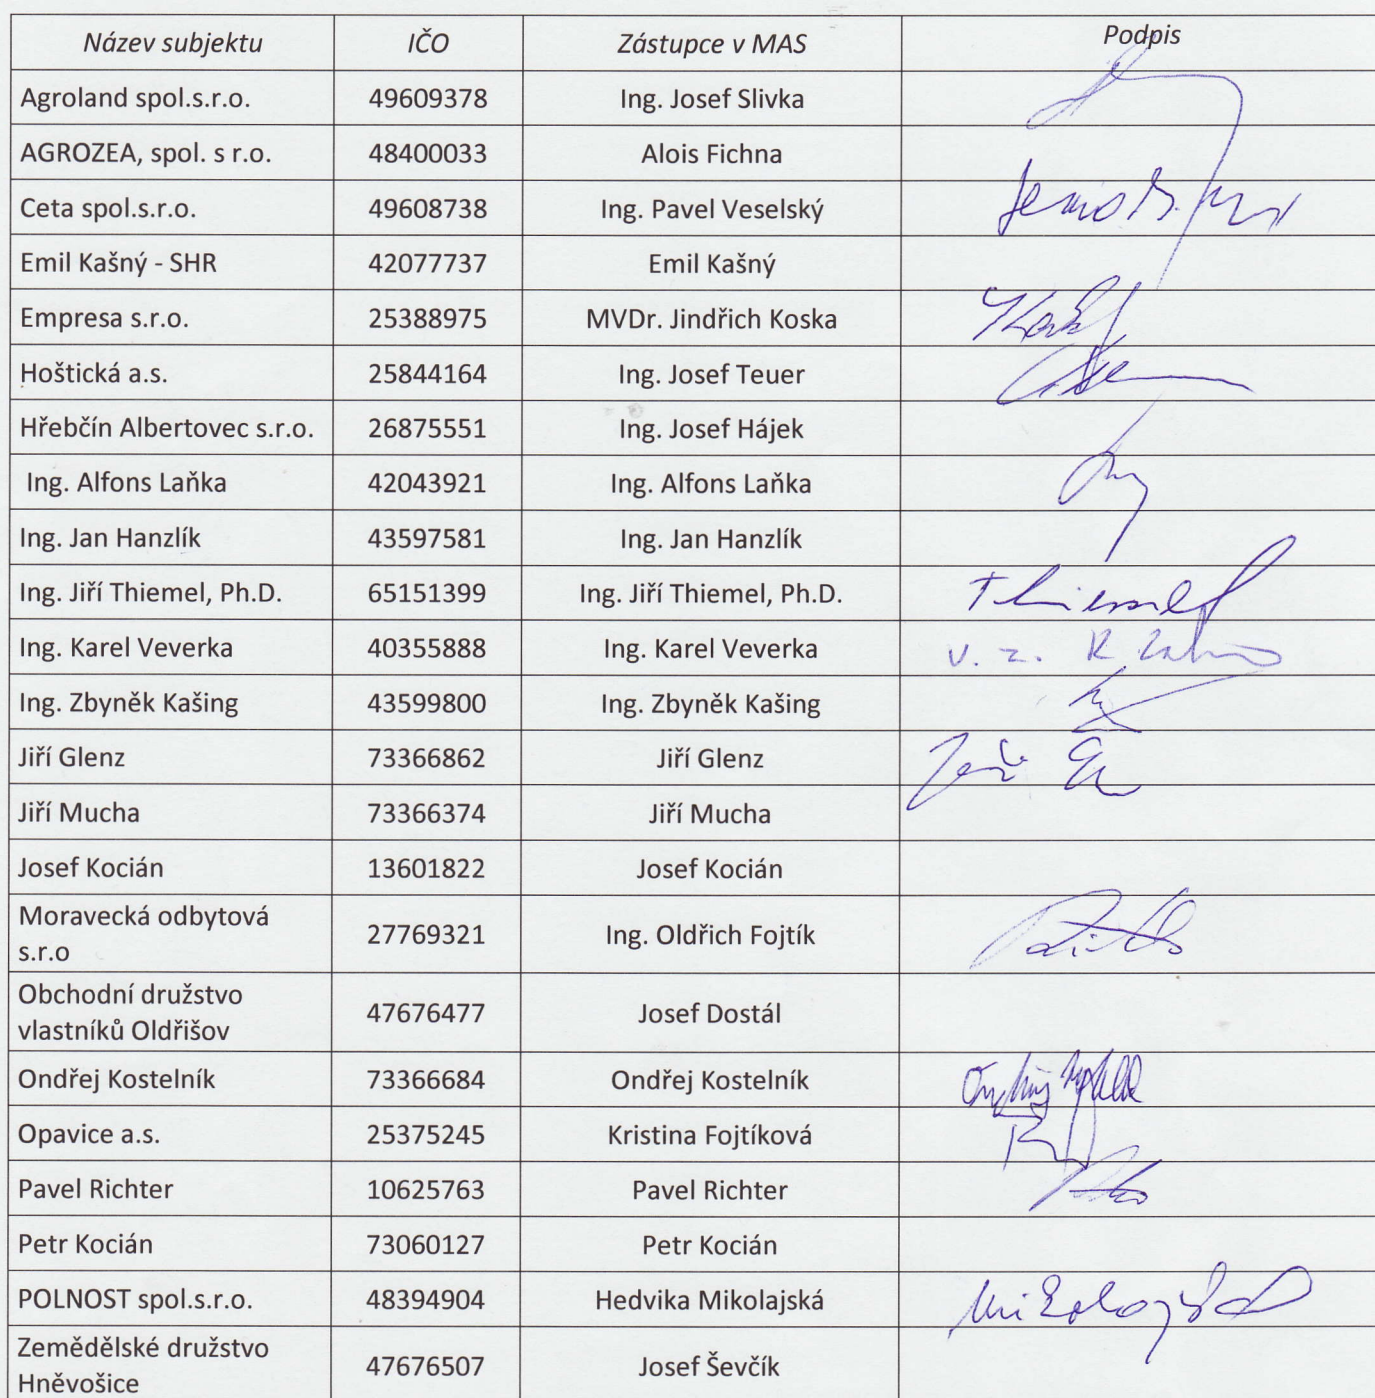 Název subjektu IČO Zástupce v MAS Podpis
Agroland spol.s.r.o. 49609378 Ing. Josef Slivka
AGROZEA, spol. s r.o. 48400033 Alois Fichna
Ceta spol.s.r.o. 49608738 Ing. Pavel Veselský
Emil Kašný - SHR 42077737 Emil Kašný
Empresa s.r.o. 25388975 MVDr. Jindřich Koska
Hoštická a.s. 25844164 Ing. Josef Teuer
Hřebčín Albertovec s.r.o. 26875551 Ing. Josef Hájek
Ing. Alfons Laňka 42043921 Ing. Alfons Laňka
Ing. Jan Hanzlík 43597581 Ing. Jan Hanzlík
Ing. Jiří Thiemel, Ph.D. 65151399 Ing. Jiří Thiemel, Ph.D. Thiemel
Ing. Karel Veverka 40355888 Ing. Karel Veverka v. z. K
Ing. Zbyněk Kašing 43599800 Ing. Zbyněk Kašing
Jiří Glenz 73366862 Jiří Glenz Jiří
Jiří Mucha 73366374 Jiří Mucha
Josef Kocián 13601822 Josef Kocián
Moravecká odbytová
s.r.o 27769321 Ing. Oldřich Fojtík
Obchodní družstvo
vlastníků Oldřišov 47676477 Josef Dostál
Ondřej Kostelník 73366684 Ondřej Kostelník Ondřej
Opavice a.s. 25375245 Kristina Fojtíková
Pavel Richter 10625763 Pavel Richter
Petr Kocián 73060127 Petr Kocián
POLNOST spol.s.r.o. 48394904 Hedvika Mikolajská Mikolajská
Zemědělské družstvo
Hněvošice 47676507 Josef Ševčík